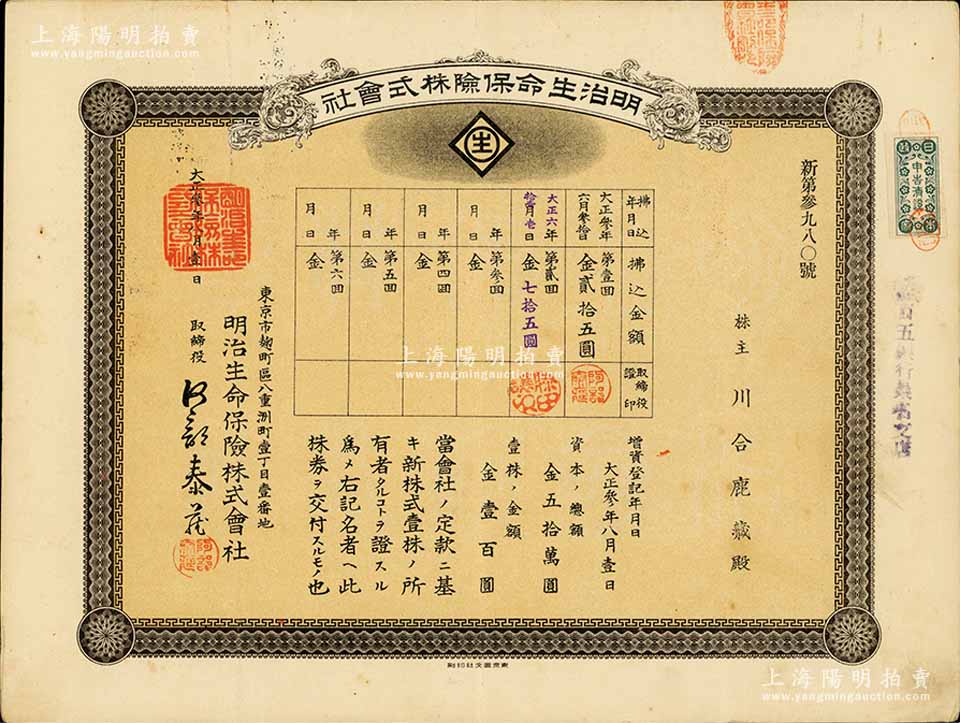 上海陽明拍賣
www.yangmingauction.com
明治生命保險株式會社
生
新第參九八〇號
株主 川合鹿藏殿
拂込年月日
拂込金額
取締役證印
大正參年六月參拾日
第壹回
金貳拾五圓
大正六年拾月壱日
第貳回
金七拾五圓
年月日
第參回
金
年月日
第四回
金
年月日
第五回
金
年月日
第六回
金
增資登記年月日
大正參年八月壹日
資本ノ總額
金五拾萬圓
壹株ノ金額
金壹百圓
當會社ノ定款ニ基
キ新株式壹株ノ所
有者タルコトヲ證スル
爲メ右記名者ヘ此
株券ヲ交付スルモノ也
東京市麹町區八重洲町壹丁目壹番地
明治生命保險株式會社
取締役 阿部泰藏
大正參年八月壹日
上海陽明拍賣
www.yangmingauction.com
上海陽明拍賣
www.yangmingauction.com